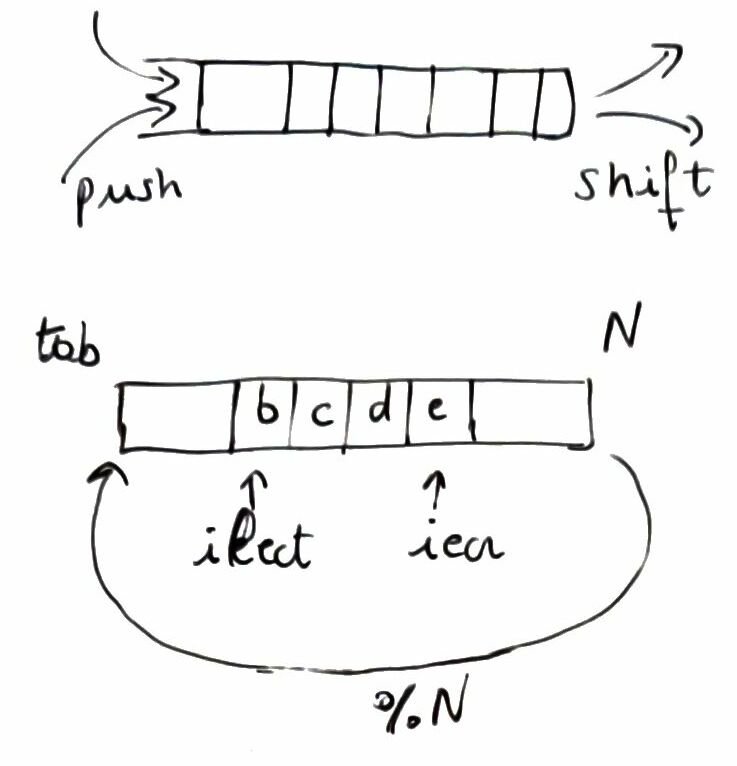 push shift
tab N
b c d e
ilect iecr
%N